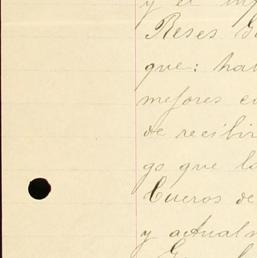 y el inf
Reses G
que: ha
mejores c
de recibir
go que l
Cueros de
y actual